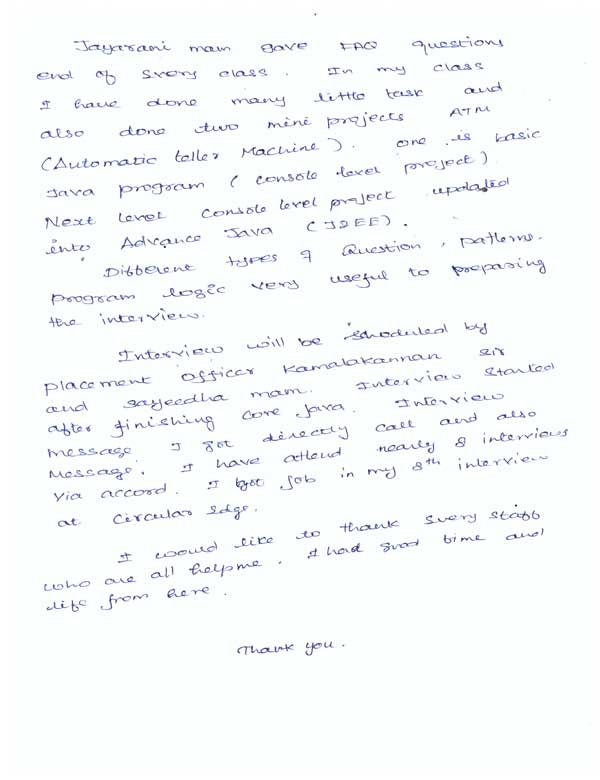 Jayarani mam gave FAQ questions
end of every class. In my class
I have done many little task and
also done two mini projects ATM
(Automatic teller Machine). one is basic
Java program (console level project)
Next level console level project updated
into Advance Java (J2EE).
Different types of Question, patterns.
program logic very useful to preparing
the interview.
Interview will be sheduled by
placement officer Kamalakannan sir
and sayeedha mam. Interview started
after finishing core java. Interview
message I got directly call and also
Message. I have attend nearly 8 interviews
via accord. I got job in my 8th interview
at Circular Edge.
I would like to thank every staff
who are all helpme. I had good time and
life from here.
Thank you.